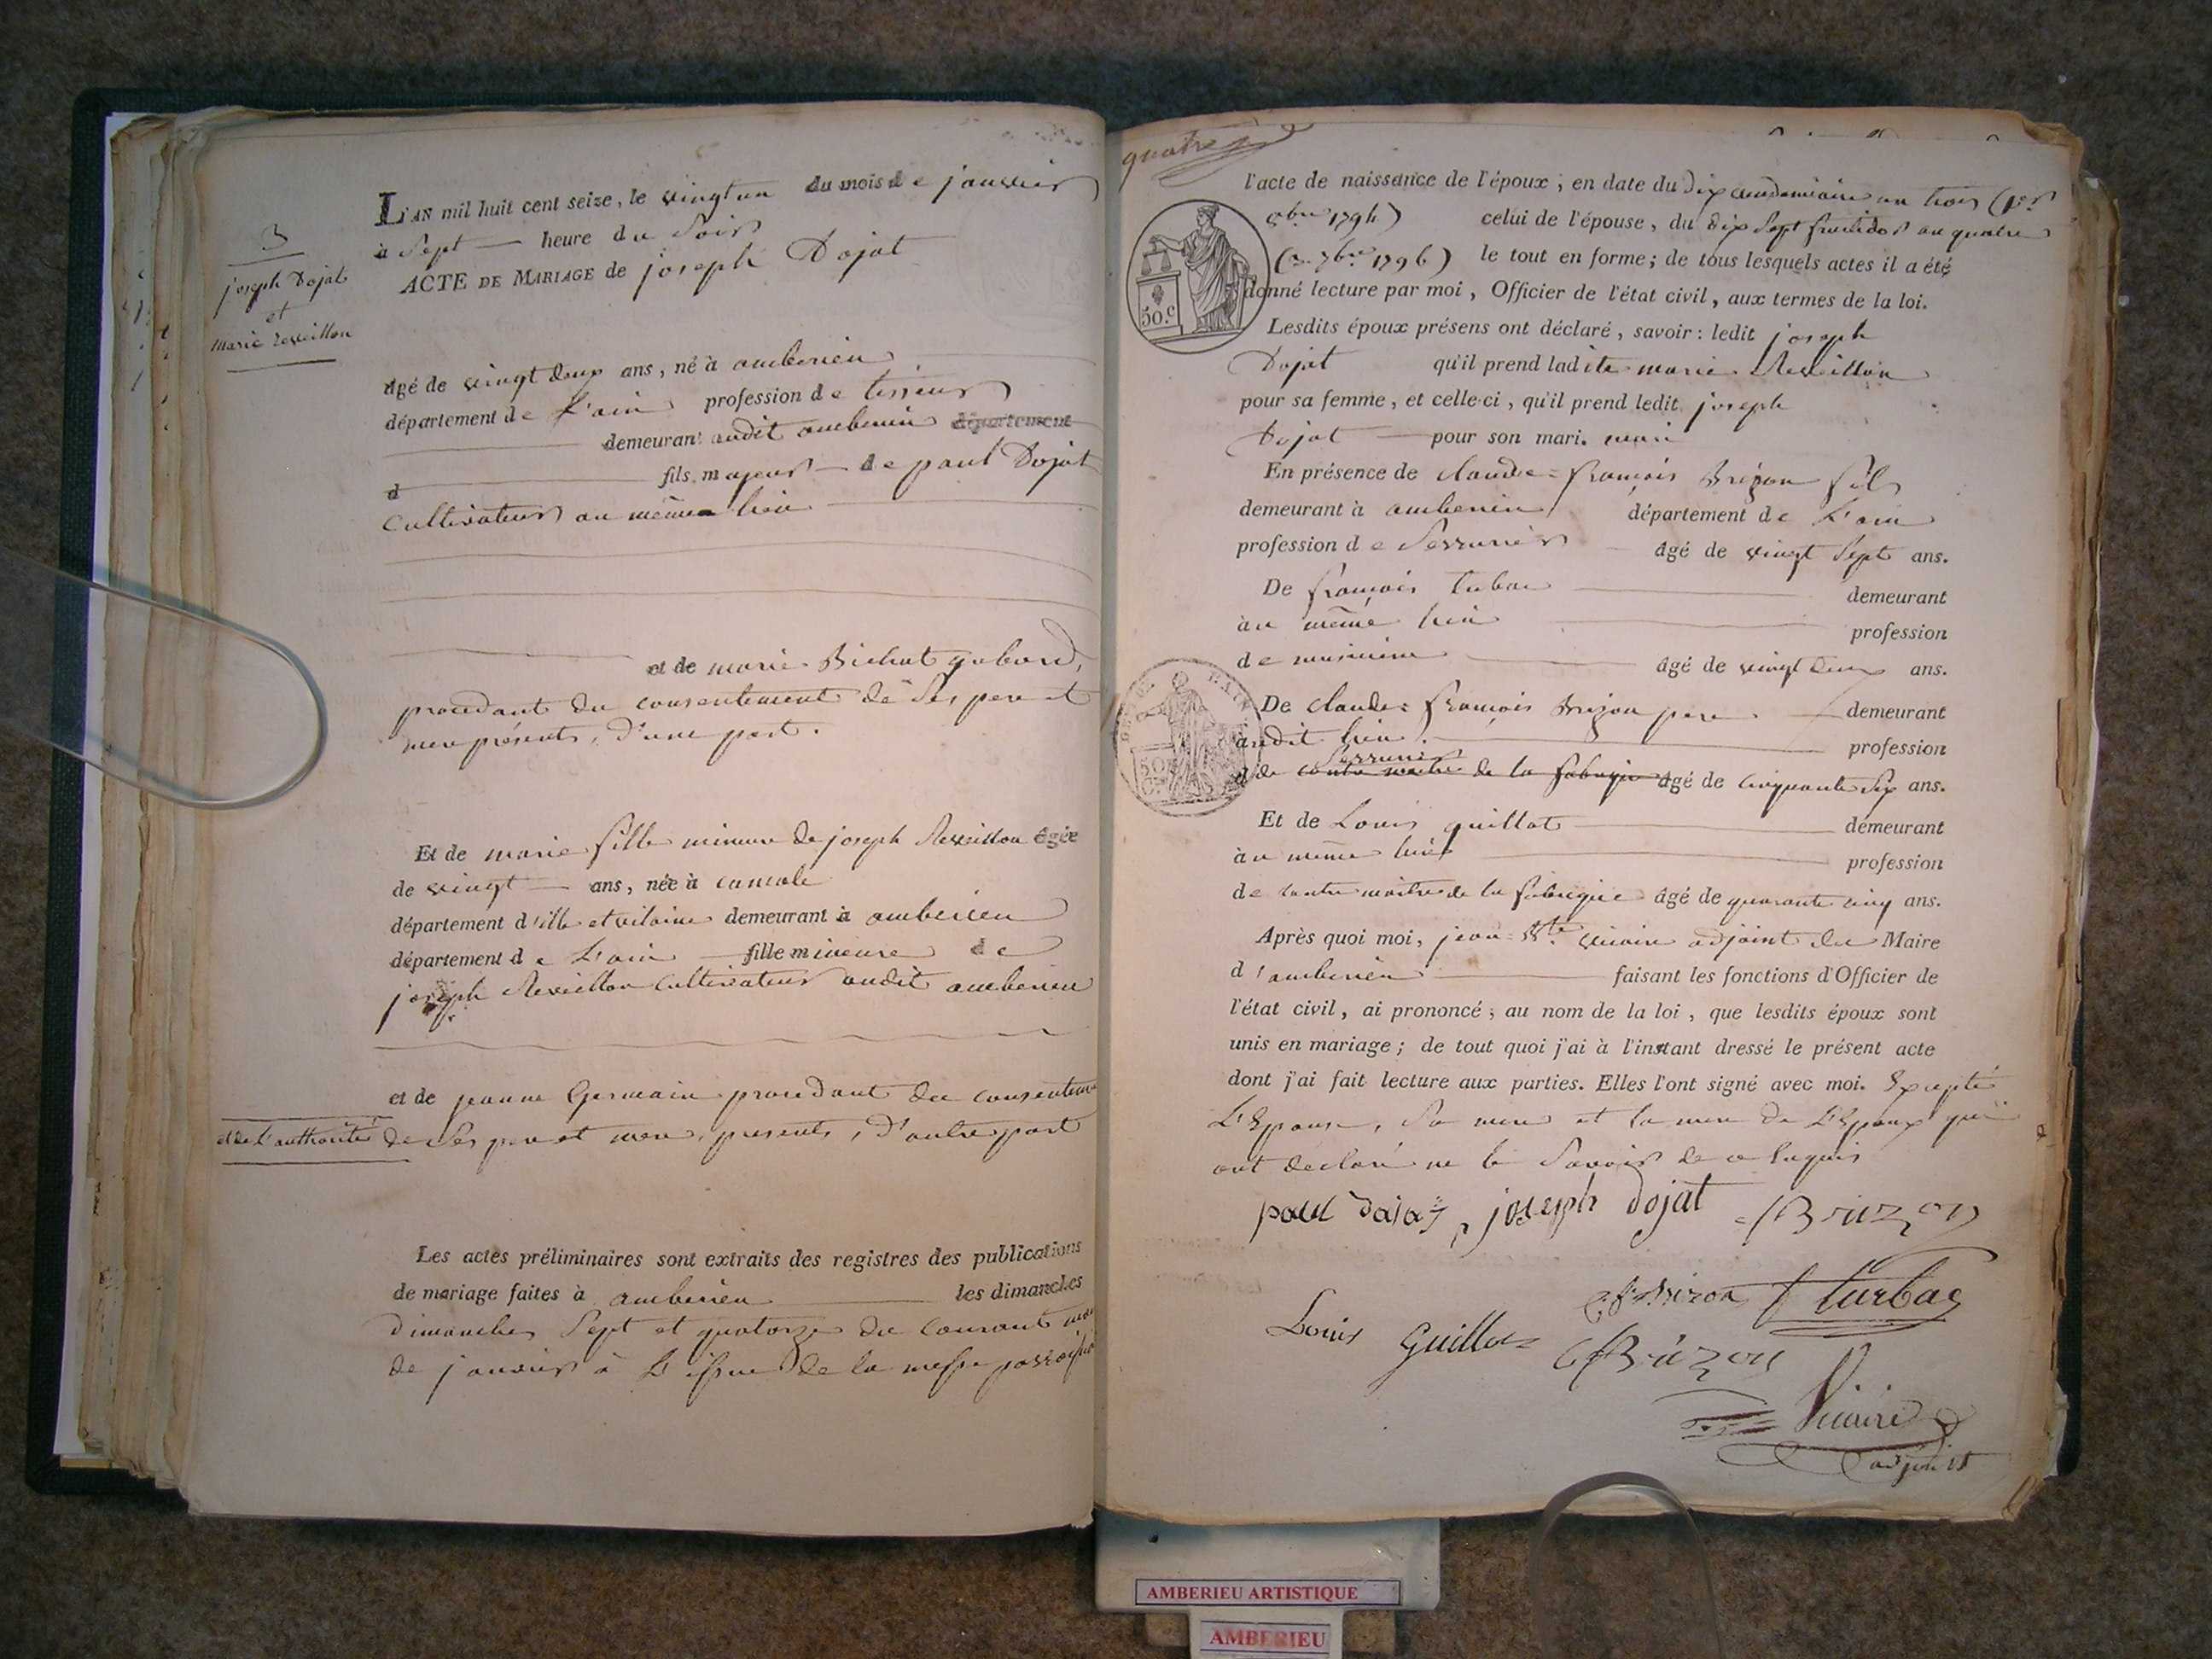 3
joseph Dojat
et
marie Reveillon
L'AN mil huit cent seize, le vingt un du mois de janvier
à Sept heure du Soir
ACTE DE MARIAGE de joseph Dojat
âgé de vingt deux ans, né à amberieu
département de L'ain profession de tisseur
demeurant audit amberieu département
d fils majeur de paul Dojat
Cultivateur au même lieu
et de marie Bichat gabond,
procedant du consentement de Ses pere et
mere présents, D'une part.
Et de marie fille mineure de joseph Reveillon âgée
de vingt ans, née à cancale
département d'ille et vilaine demeurant à amberieu
département de L'ain fille mineure de
joseph Reveillon Cultivateur audit amberieu
et de jeanne Germain procedant du consentement
et de L'authorité de Ses pere et mere, presents, D'autre part
Les actes préliminaires sont extraits des registres des publications
de mariage faites à amberieu les dimanches
Dimanches Sept et quatorze du Courant mois
de janvier à L'issue de la messe parroissiale
quatre
l'acte de naissance de l'époux, en date du Dix vendemiaire an trois (1er
8bre 1794) celui de l'épouse, du dix Sept fructidor an quatre
(3 7bre 1796) le tout en forme; de tous lesquels actes il a été
donné lecture par moi, Officier de l'état civil, aux termes de la loi.
50.c
Lesdits époux présens ont déclaré, savoir: ledit joseph
Dojat qu'il prend ladite marie Reveillon
pour sa femme, et celle-ci, qu'il prend ledit joseph
Dojat pour son mari. mari
En présence de claude=françois Brizon fils
demeurant à amberieu département de L'ain
profession de Serrurier âgé de vingt Sept ans.
De françois turbac demeurant
au même lieu profession
de musicien âgé de vingt deux ans.
De claude=françois Brizon pere demeurant
audit lieu profession
Serrurier
de contre maitre de la fabrique âgé de cinquante Six ans.
Et de Louis guillot demeurant
au même lieu profession
de contre maitre de la fabrique âgé de quarante cinq ans.
Après quoi moi, jean=Bte vicaire adjoint du Maire
d'amberieu faisant les fonctions d'Officier de
l'état civil, ai prononcé, au nom de la loi, que lesdits époux sont
unis en mariage; de tout quoi j'ai à l'instant dressé le présent acte
dont j'ai fait lecture aux parties. Elles l'ont signé avec moi. Excepté
L'Epouse, Sa mere et la mere de L'Epoux qui
ont declaré ne le Savoir de ce Enquis
paul dojat joseph dojat Brizon
Brizon f turbac
Louis Guillot Brizon
Vicaire
adjoint
AMBERIEU ARTISTIQUE
AMBERIEU